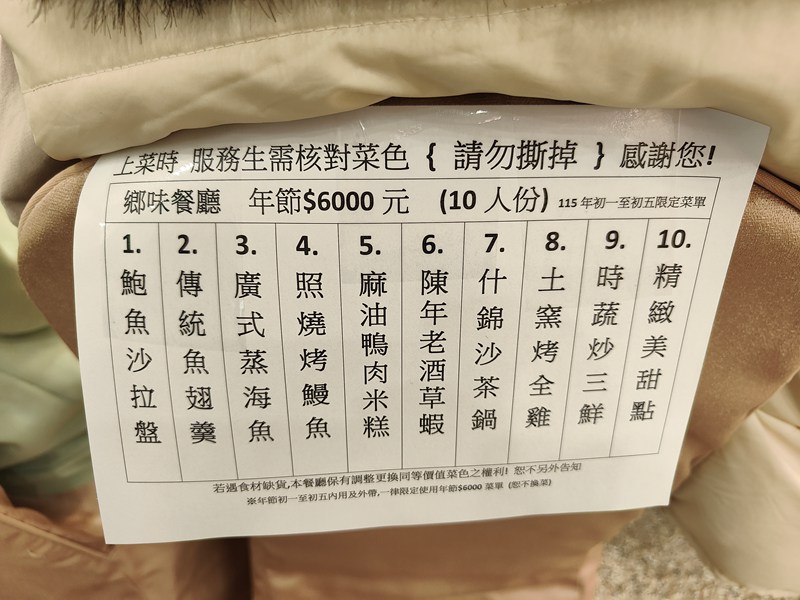 上菜時 服務生需核對菜色 { 請勿撕掉 } 感謝您!
鄉味餐廳 年節$6000 元 (10 人份) 115 年初一至初五限定菜單
1. 鮑魚沙拉盤
2. 傳統魚翅羹
3. 廣式蒸海魚
4. 照燒烤鰻魚
5. 麻油鴨肉米糕
6. 陳年老酒草蝦
7. 什錦沙茶鍋
8. 土窯烤全雞
9. 時蔬炒三鮮
10. 精緻美甜點
若遇食材缺貨,本餐廳保有調整更換同等價值菜色之權利! 恕不另外告知
※年節初一至初五內用及外帶,一律限定使用年節$6000 菜單 (恕不換菜)